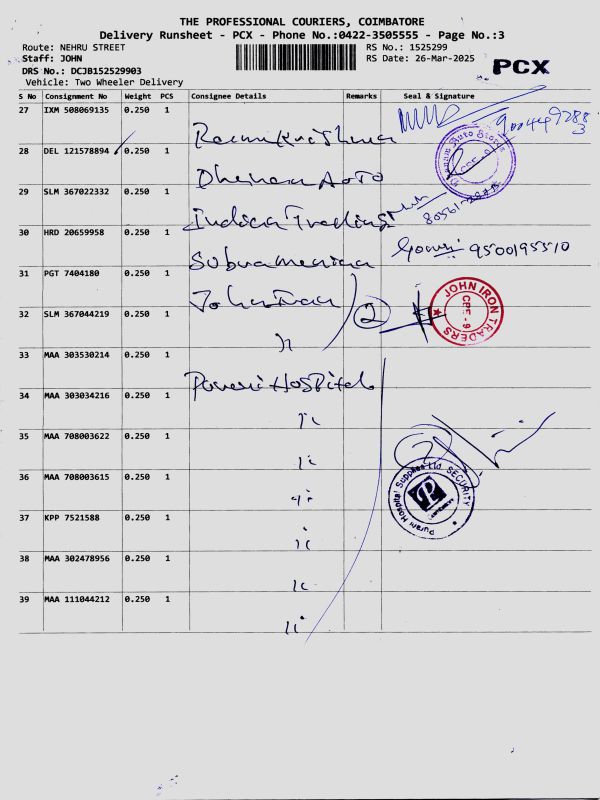 THE PROFESSIONAL COURIERS, COIMBATORE
Delivery Runsheet - PCX - Phone No.:0422-3505555 - Page No.:3
Route: NEHRU STREET RS No.: 1525299
Staff: JOHN RS Date: 26-Mar-2025 PCX
DRS No.: DCJB152529903
Vehicle: Two Wheeler Delivery
S No Consignment No Weight PCS Consignee Details Remarks Seal & Signature
27 IXM 508069135 0.250 1
28 DEL 121578894 0.250 1
29 SLM 367022332 0.250 1 Indica Trading
30 HRD 20659958 0.250 1 Gowri 9500195510
31 PGT 7404180 0.250 1 2 JOHN IRON TRADERS CPE-9
32 SLM 367044219 0.250 1
33 MAA 303530214 0.250 1 Hospital
34 MAA 303034216 0.250 1
35 MAA 708003622 0.250 1
36 MAA 708003615 0.250 1 Purani Hospital Supplies Ltd SECURITY
37 KPP 7521588 0.250 1
38 MAA 302478956 0.250 1
39 MAA 111044212 0.250 1